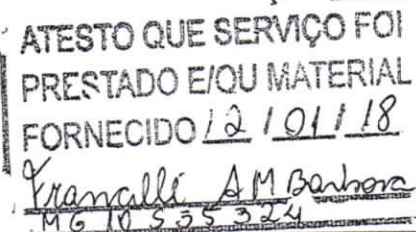 ATESTO QUE SERVIÇO FOI
PRESTADO E/OU MATERIAL
FORNECIDO 12 / 01 / 18
Francilli A M Barbosa
MG 10 535 324